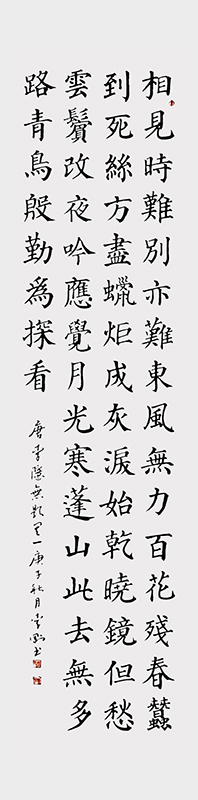 相見時難別亦難東風無力百花殘春蠶
到死絲方盡蠟炬成灰淚始乾曉鏡但愁
雲鬢改夜吟應覺月光寒蓬山此去無多
路青鳥殷勤爲探看
唐李隱無題一庚子秋月李書